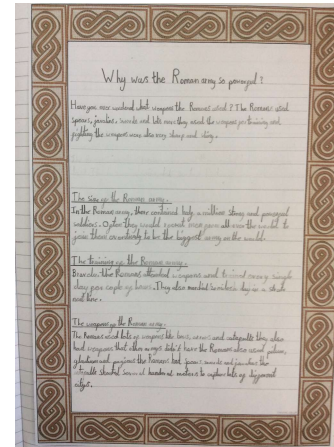 Why was the Roman army so powerful?
Have you ever wondered what weapons the Romans used? The Romans used
spears, javelins, swords and lots more they used the weapons for training and
fighting the weapons were also very sharp and
The size of the Roman army.
In the Roman army, there contained half a million strong and powerful
soldiers. Often they would recruit more from all over the world to
join them to be the biggest army in the world.
The training of the Roman army.
the Romans attended weapons and trained every single
day for a couple of hours. They also marched 20 miles a day in a
The weapons of the Roman army.
The Romans used lots of weapons like bows, arrows and catapults they also
had weapons that other armys didn't have the Romans also used pilum,
gladius and the Romans had spears swords and the
could shoot several hundred meters to capture lots of different
citys.